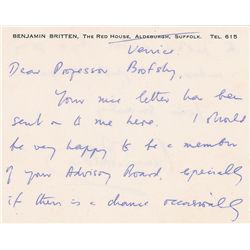 BENJAMIN BRITTEN, THE RED HOUSE, ALDEBURGH, SUFFOLK. TEL. 615
Venice.
Dear Professor
Your nice letter has been
sent on to me here. I should
be very happy to be a member
of your Advisory Board, especially
if there is a chance occasionally